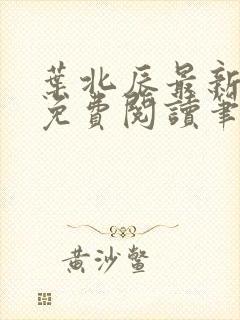 葉北辰最新
免費閱讀筆
黃沙鱉